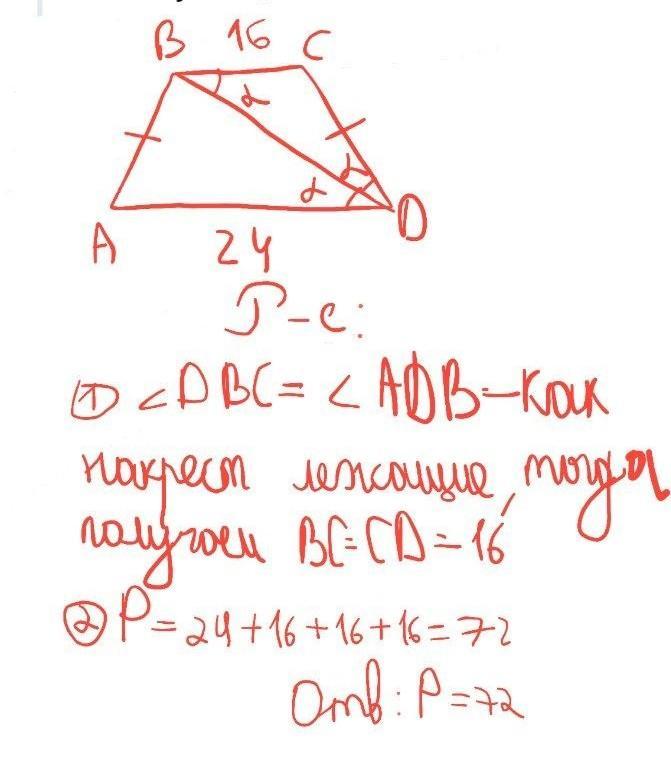 B 16 C
α
α
α
A
D
24
Р-е:
① ∠DBC = ∠ADB - как
накрест лежащие, тогда
получаем BC = CD = 16
② P = 24 + 16 + 16 + 16 = 72
Отв: P = 72